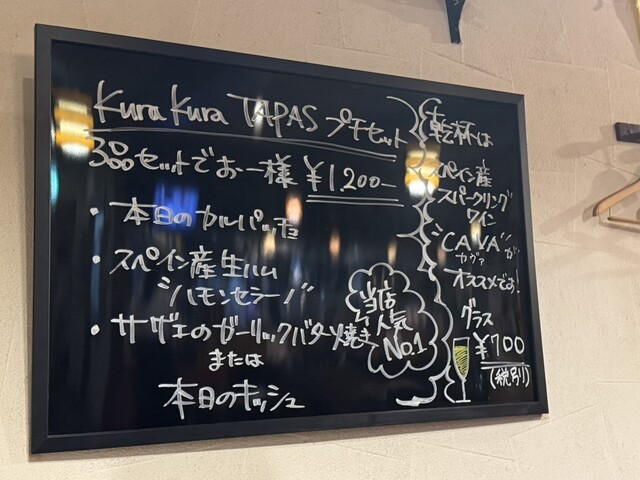 Kura Kura TAPAS プチセット
3品セットでお一様 ¥1,200-
・本日のカルパッチョ
・スペイン産生ハム
"ハモンセラーノ"
・サザエのガーリックバター焼き
または
本日のキッシュ
当店
人気
No.1
乾杯は
スペイン産
スパークリング
ワイン
"CAVA"が
カヴァ
オススメです!
グラス
¥700
(税別)